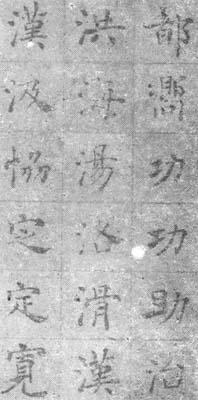 部澗功功助治
洪海湯洛滑漢
漢汲協定定寬